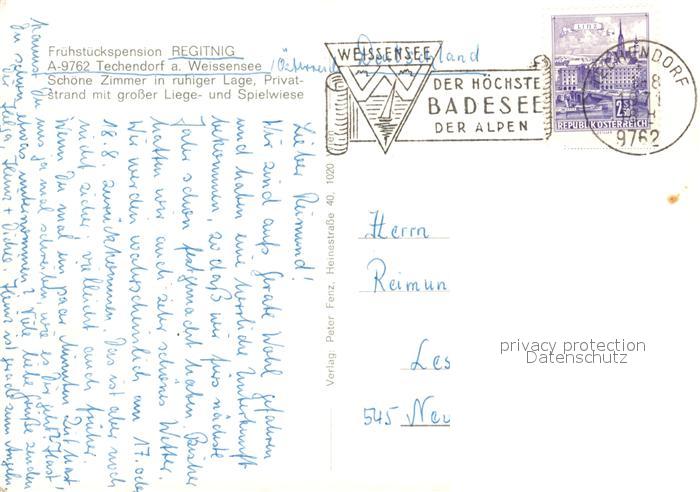 Frühstückspension REGITNIG
A-9762 Techendorf a. Weissensee /Österreich
Schöne Zimmer in ruhiger Lage, Privat-
strand mit großer Liege- und Spielwiese
Deutschland
WEISSENSEE
DER HÖCHSTE
BADESEE
DER ALPEN
LINZ
2.50
REPUBLIK ÖSTERREICH
TECHENDORF
9762
Lieber Reimund!
Wir sind aufs Gerate Wohl gefahren
und haben eine herrliche Unterkunft
bekommen, so daß wir fürs nächste
Jahr schon festgemacht haben. Bisher
hatten wir auch sehr schönes Wetter.
Wir werden wahrscheinlich am 17. oder
18.8. zurückkommen. Das ist aber noch
nicht sicher, vielleicht auch früher.
Wenn Du mal ein paar Minuten Zeit hast,
kannst Du uns ja mal schreiben, wie es Dir geht? Hast
Du schon etwas unternommen? Viele liebe Grüße senden
Dir Helga, Heinz + Heinz ist gerade zum Angeln
Verlag: Peter Fenz, Heinestraße 40, 1020 Wien
Herrn
Reimun
Les
545 Neu
privacy protection
Datenschutz